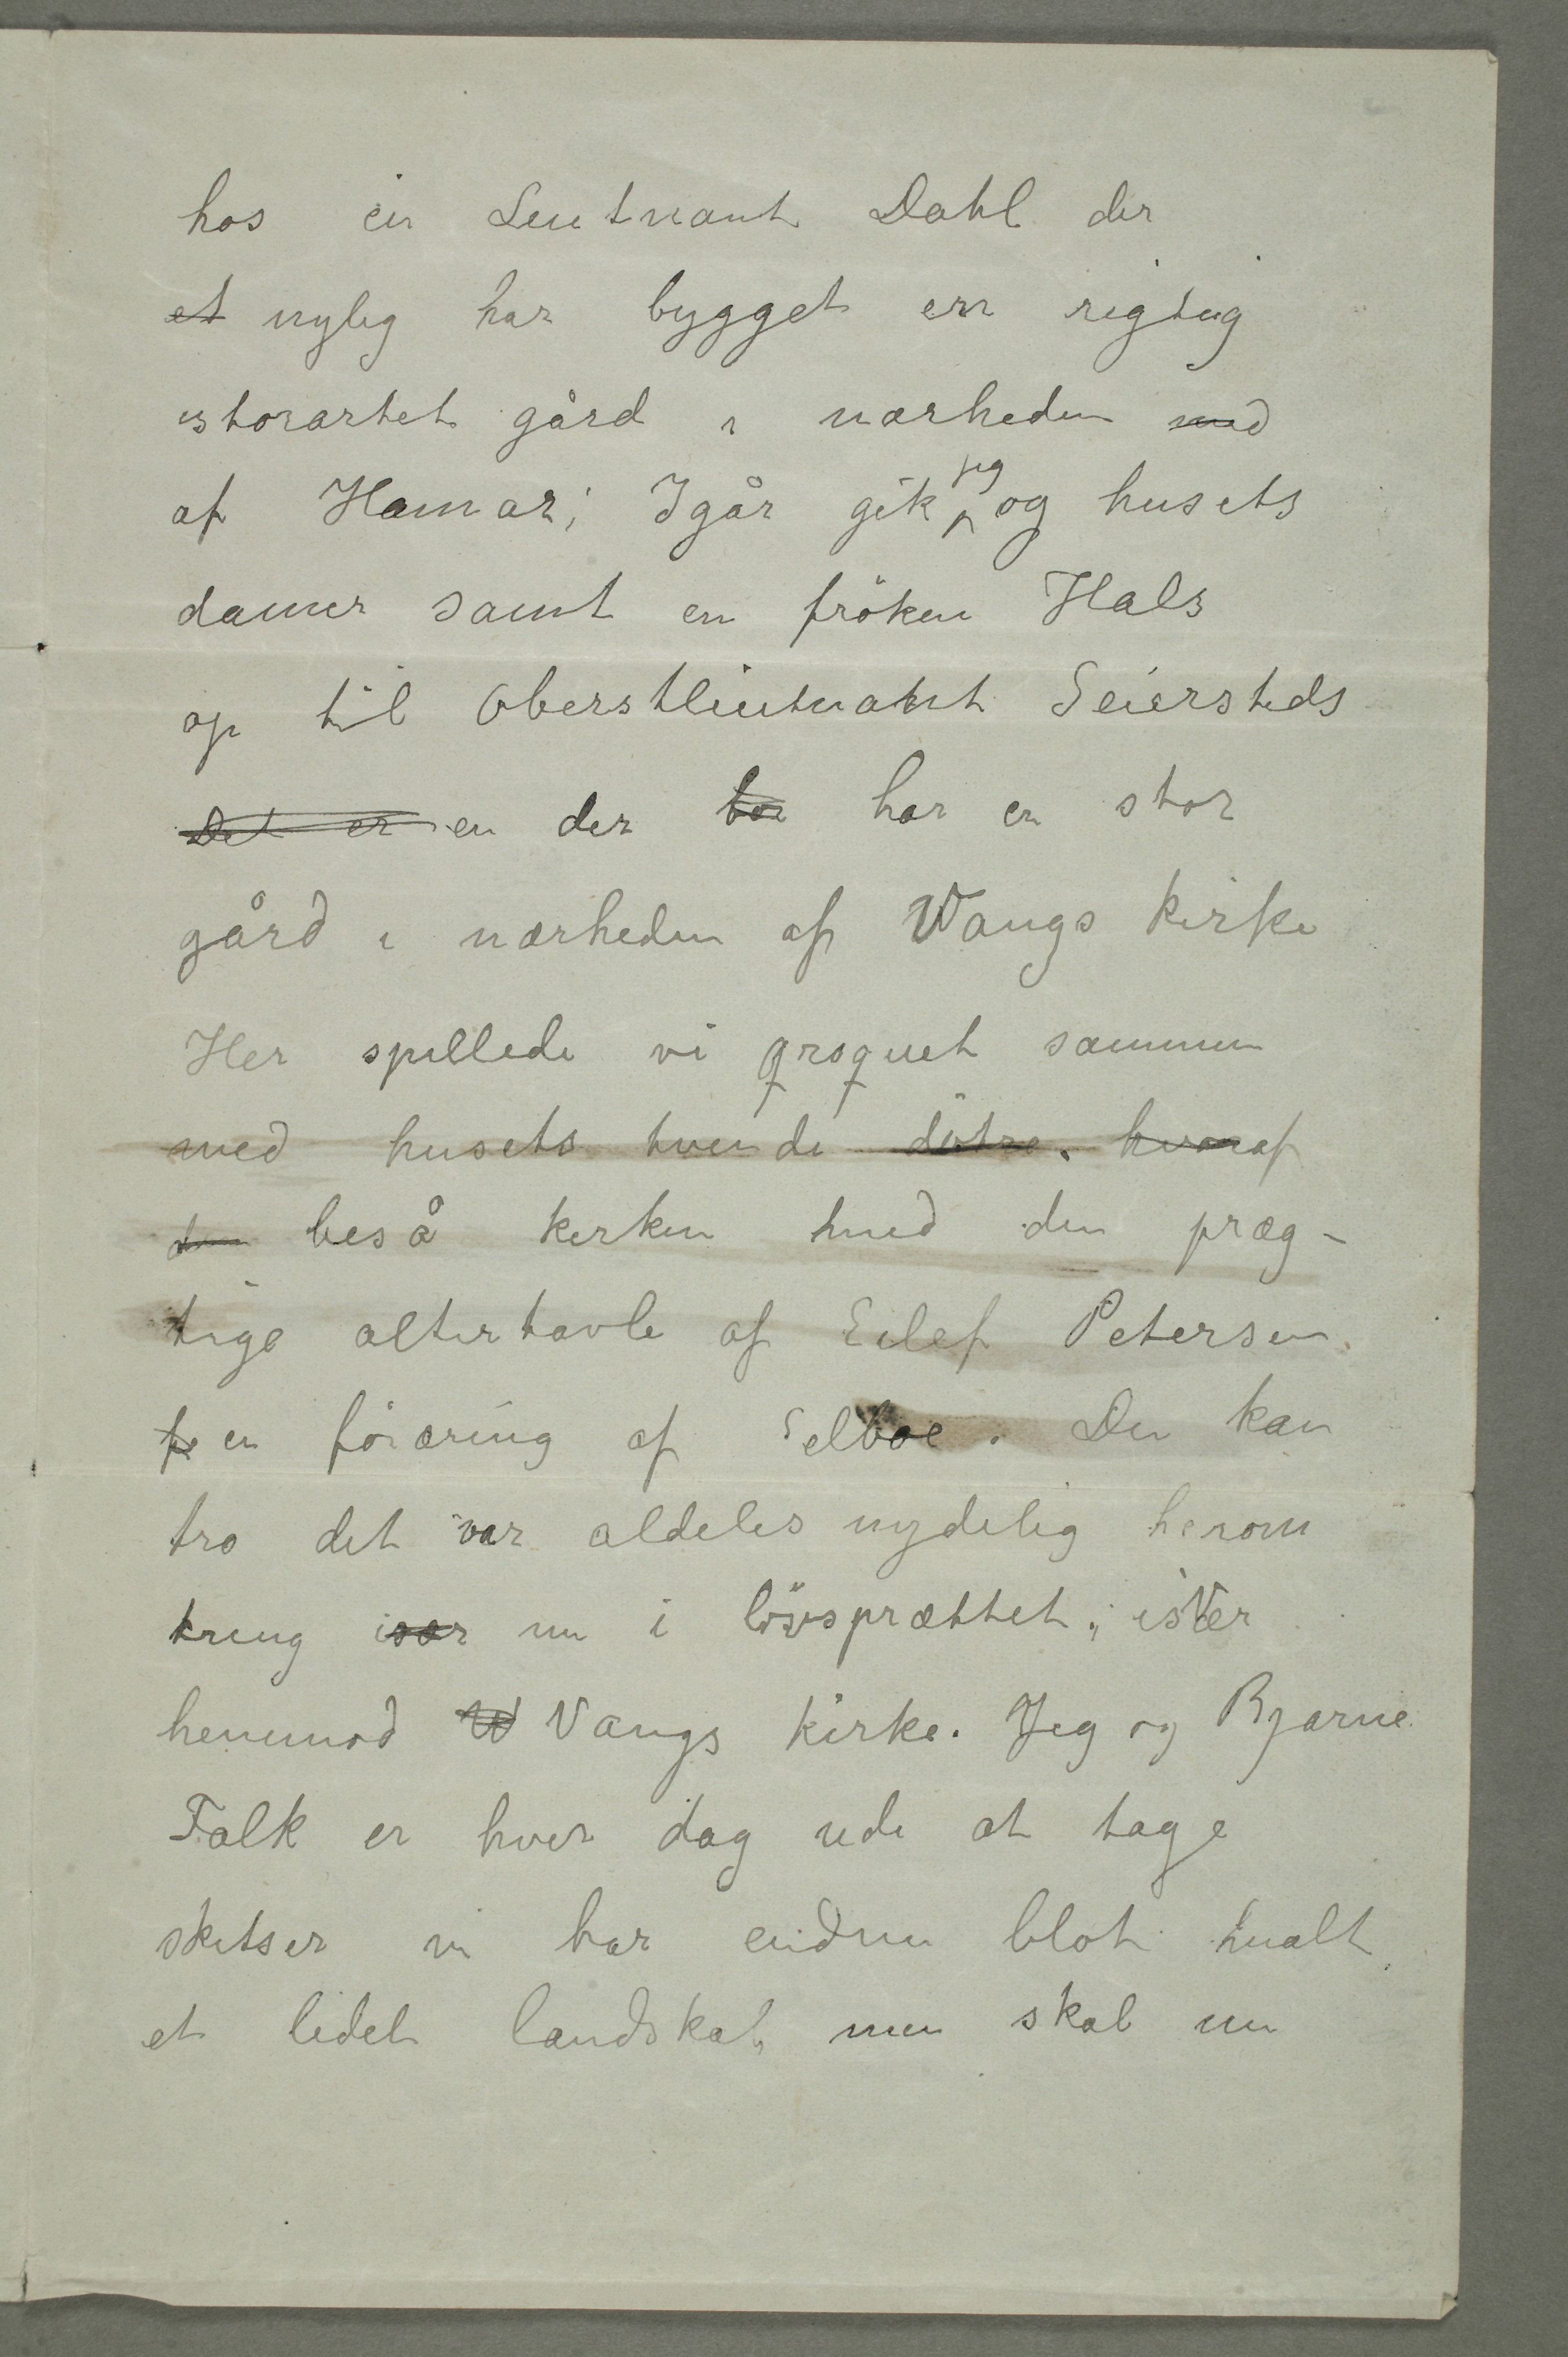 hos en Leutnant Dahl der
et nylig har bygget en rigtig
storartet gård i nærheden med
af Hamar; Igår gik jeg og husets
damer samt en fröken Hals
op til Oberstlieutnant Seiersteds
Det er en der bor har en stor
gård i nærheden af Wangs kirke
Her spillede vi qroquet sammen
med husets tvende döttre. hvoraf
beså kirken med den præg-
tige altertavle af Eilef Petersen.
en foræring af Selboe. Du kan
tro det var aldeles nydelig herom
kring især nu i lövsprættet; især
henimod W Vangs kirke. Jeg og Bjarne
Falk er hver dag ude at tage
skitser vi har endnu blot malt
et lidet landskab, men skal nu